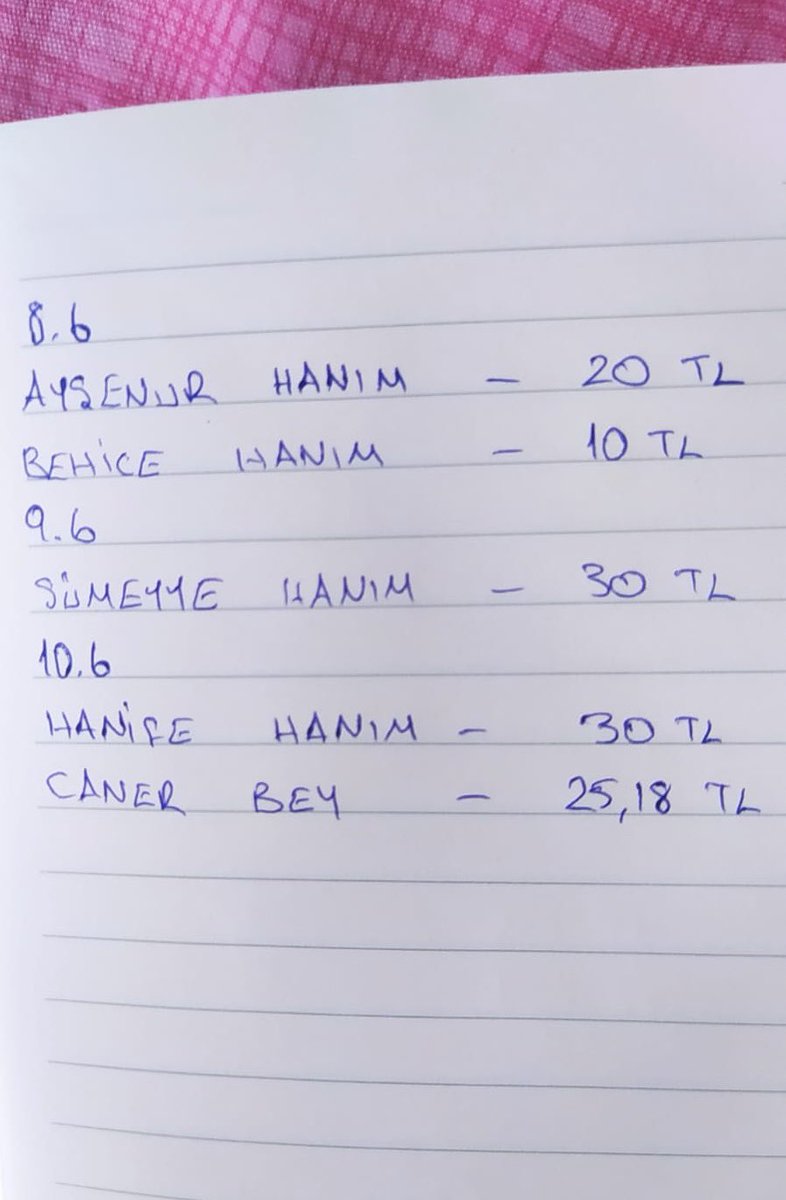 8.6
AYŞENUR HANIM - 20 TL
BEHİCE HANIM - 10 TL
9.6
SÜMEYYE HANIM - 30 TL
10.6
HANİFE HANIM - 30 TL
CANER BEY - 25,18 TL